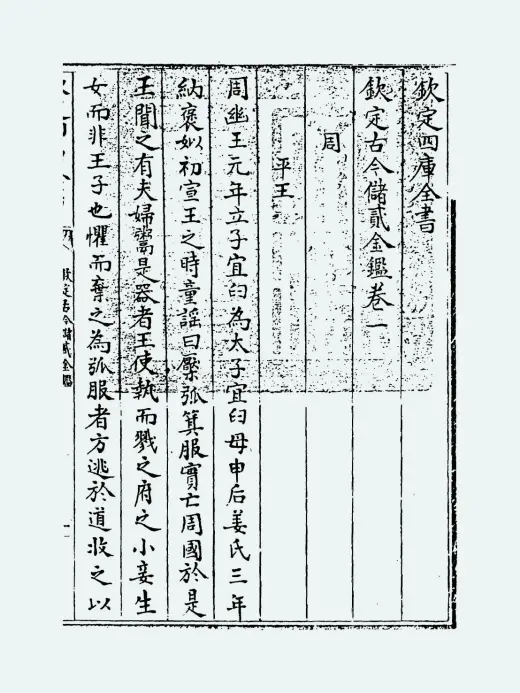 欽定四庫全書
欽定古今儲貳金鑑卷一
周
平王
周幽王元年立子宜臼為太子宜臼母申后姜氏三年
納褒姒初宣王之時童謠曰檿弧箕服實亡周國於是
王聞之有夫婦鬻是器者王使執而戮之府之小妾生
女而非王子也懼而棄之為弧服者方逃於道收之以
欽定古今儲貳金鑑
一